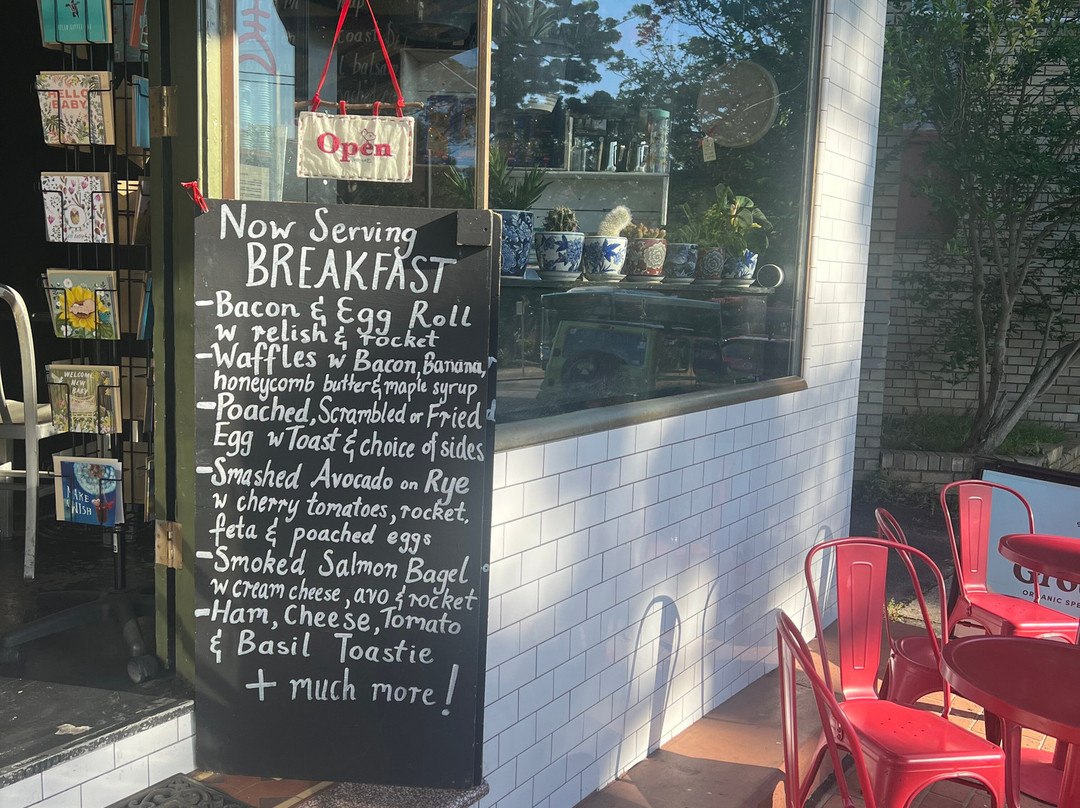 HELLO
BABY
Open
Now Serving
BREAKFAST
- Bacon & Egg Roll
w relish & rocket
- Waffles w Bacon, Banana,
honeycomb butter & maple syrup
- Poached, Scrambled or Fried
Egg w Toast & choice of sides
- Smashed Avocado on Rye
w cherry tomatoes, rocket,
feta & poached eggs
- Smoked Salmon Bagel
w cream cheese, avo & rocket
- Ham, Cheese, Tomato
& Basil Toastie
+ much more!
WELCOME
NEW
BABY
MAKE
WISH
ORGANIC